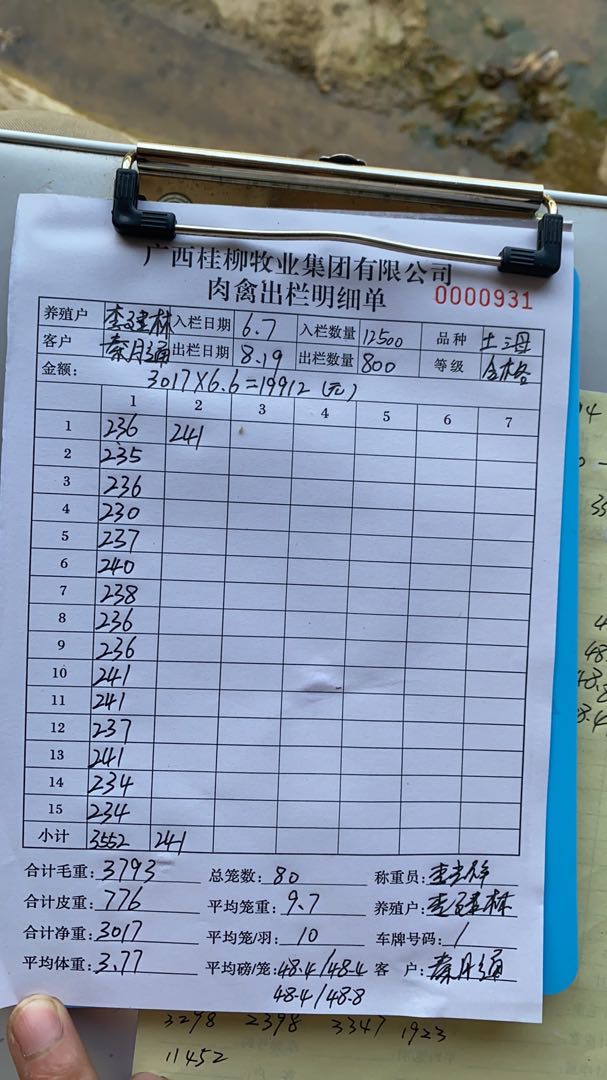 广西桂柳牧业集团有限公司
肉禽出栏明细单 0000931
养殖户 李建林 入栏日期 6.7 入栏数量 12500 品种 土2母
客户 秦月通 出栏日期 8.19 出栏数量 800 等级 合格
金额: 3017×6.6=19912(元)
1 2 3 4 5 6 7
1 236 241
2 235
3 236
4 230
5 237
6 240
7 238
8 236
9 236
10 241
11 241
12 237
13 241
14 234
15 234
小计 3552 241
合计毛重: 3793 总笼数: 80 称重员:
合计皮重: 776 平均笼重: 9.7 养殖户: 李建林
合计净重: 3017 平均笼/羽: 10 车牌号码: /
平均体重: 3.77 平均磅/笼: 48.4/48.4 客 户: 秦月通
48.4/48.8
3298 2398 3347 1923
11452